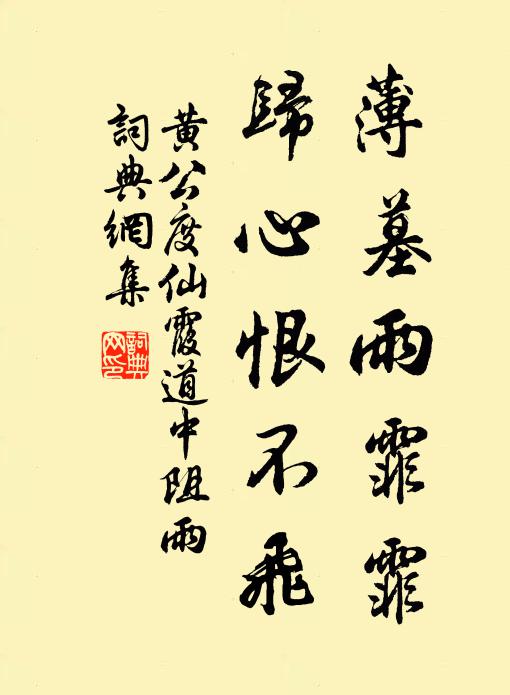 薄墓雨霏霏
歸心恨不飛
黃公度仙霞道中阻雨
詞典網集
詞典网印